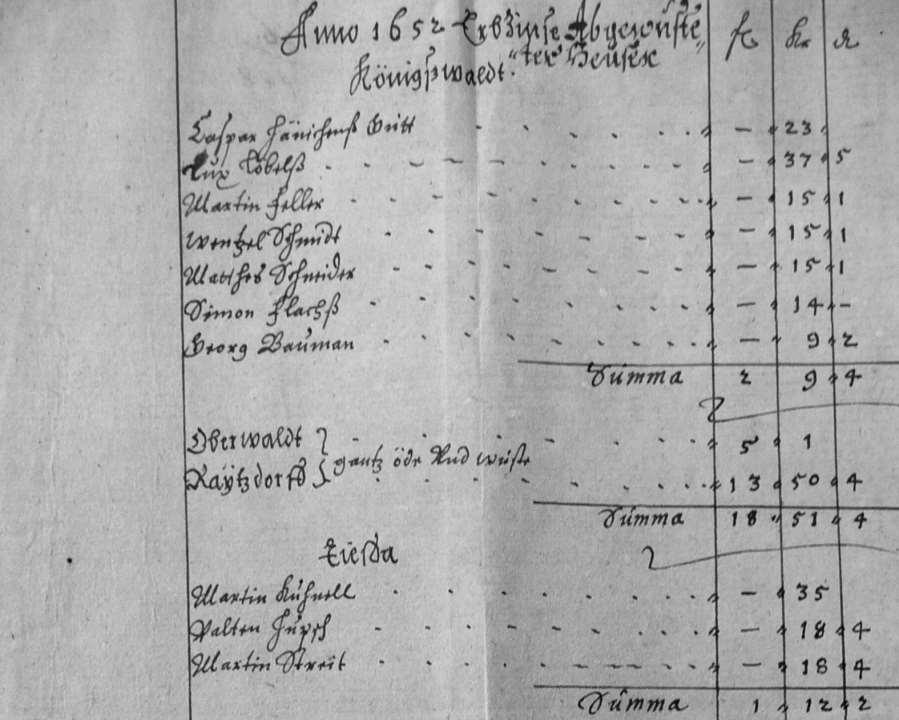 Anno 1652 Erbzinse Abgewüste„ fl kr d
Königßwaldt. „ter Heuser
Caspar Hänichenß Gutt - 23
Lux Löbelß - 37 5
Martin Feller - 15 1
Wentzel Schmidt - 15 1
Matthes Schneider - 15 1
Simon Flachß - 14 -
Georg Bauman - 9 2
Summa 2 9 4
Oberwaldt } 5 1
gantz öde Und wüste
Raÿtzdorff } 13 50 4
Summa 18 51 4
Eiesda
Martin Kühnell - 35
Valten Hüpsch - 18 4
Martin Streit - 18 4
Summa 1 12 2